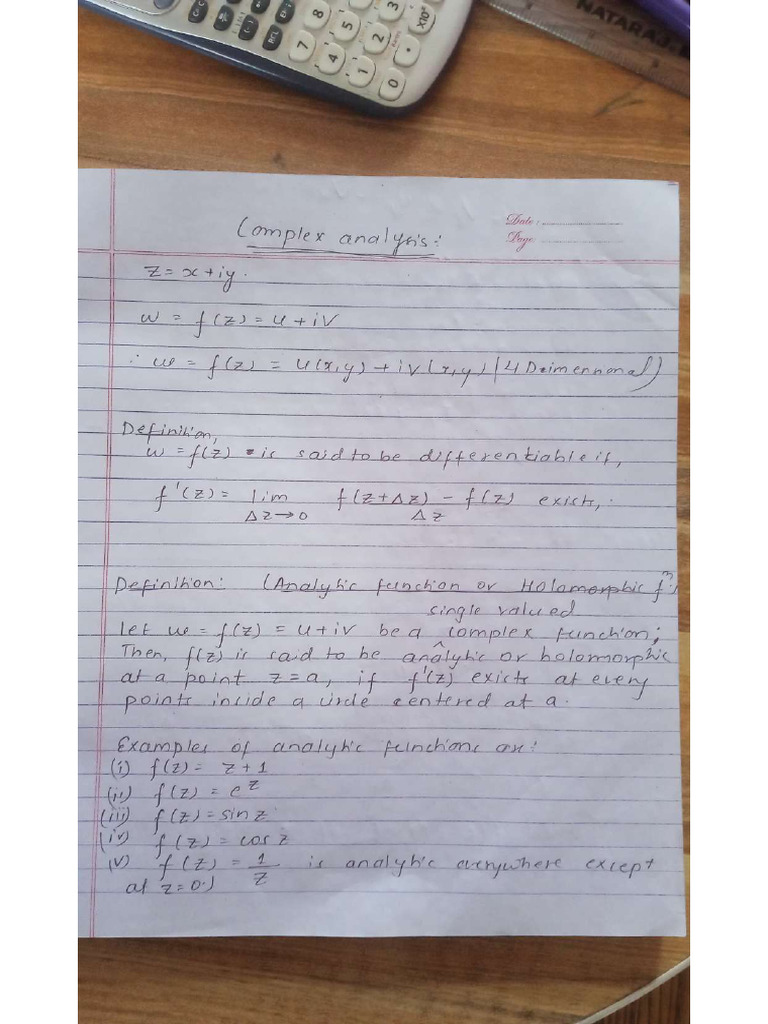 7 8
4 5
1 2 3
0 . x10ˣ
RCL
NATARAJ
Date :
Page:
Complex analysis:
z = x + iy.
w = f(z) = u + iv
∴ w = f(z) = u(x,y) + iv(x,y) (4 Dimennonal)
Definition,
w = f(z) is said to be differentiable if,
f'(z) = lim Δz→0 f(z+Δz) - f(z) / Δz exists,
Definition: (Analytic function or Holomorphic fⁿ.)
single valued
let w = f(z) = u + iv be a ^ complex function;
Then, f(z) is said to be analytic or holomorphic
at a point z = a, if f'(z) exists at every
points inside a circle centered at a.
Examples of analytic functions are:
(i) f(z) = z + 1
(ii) f(z) = e^z
(iii) f(z) = sin z
(iv) f(z) = cos z
(v) f(z) = 1/z is analytic everywhere except
at z = 0.)